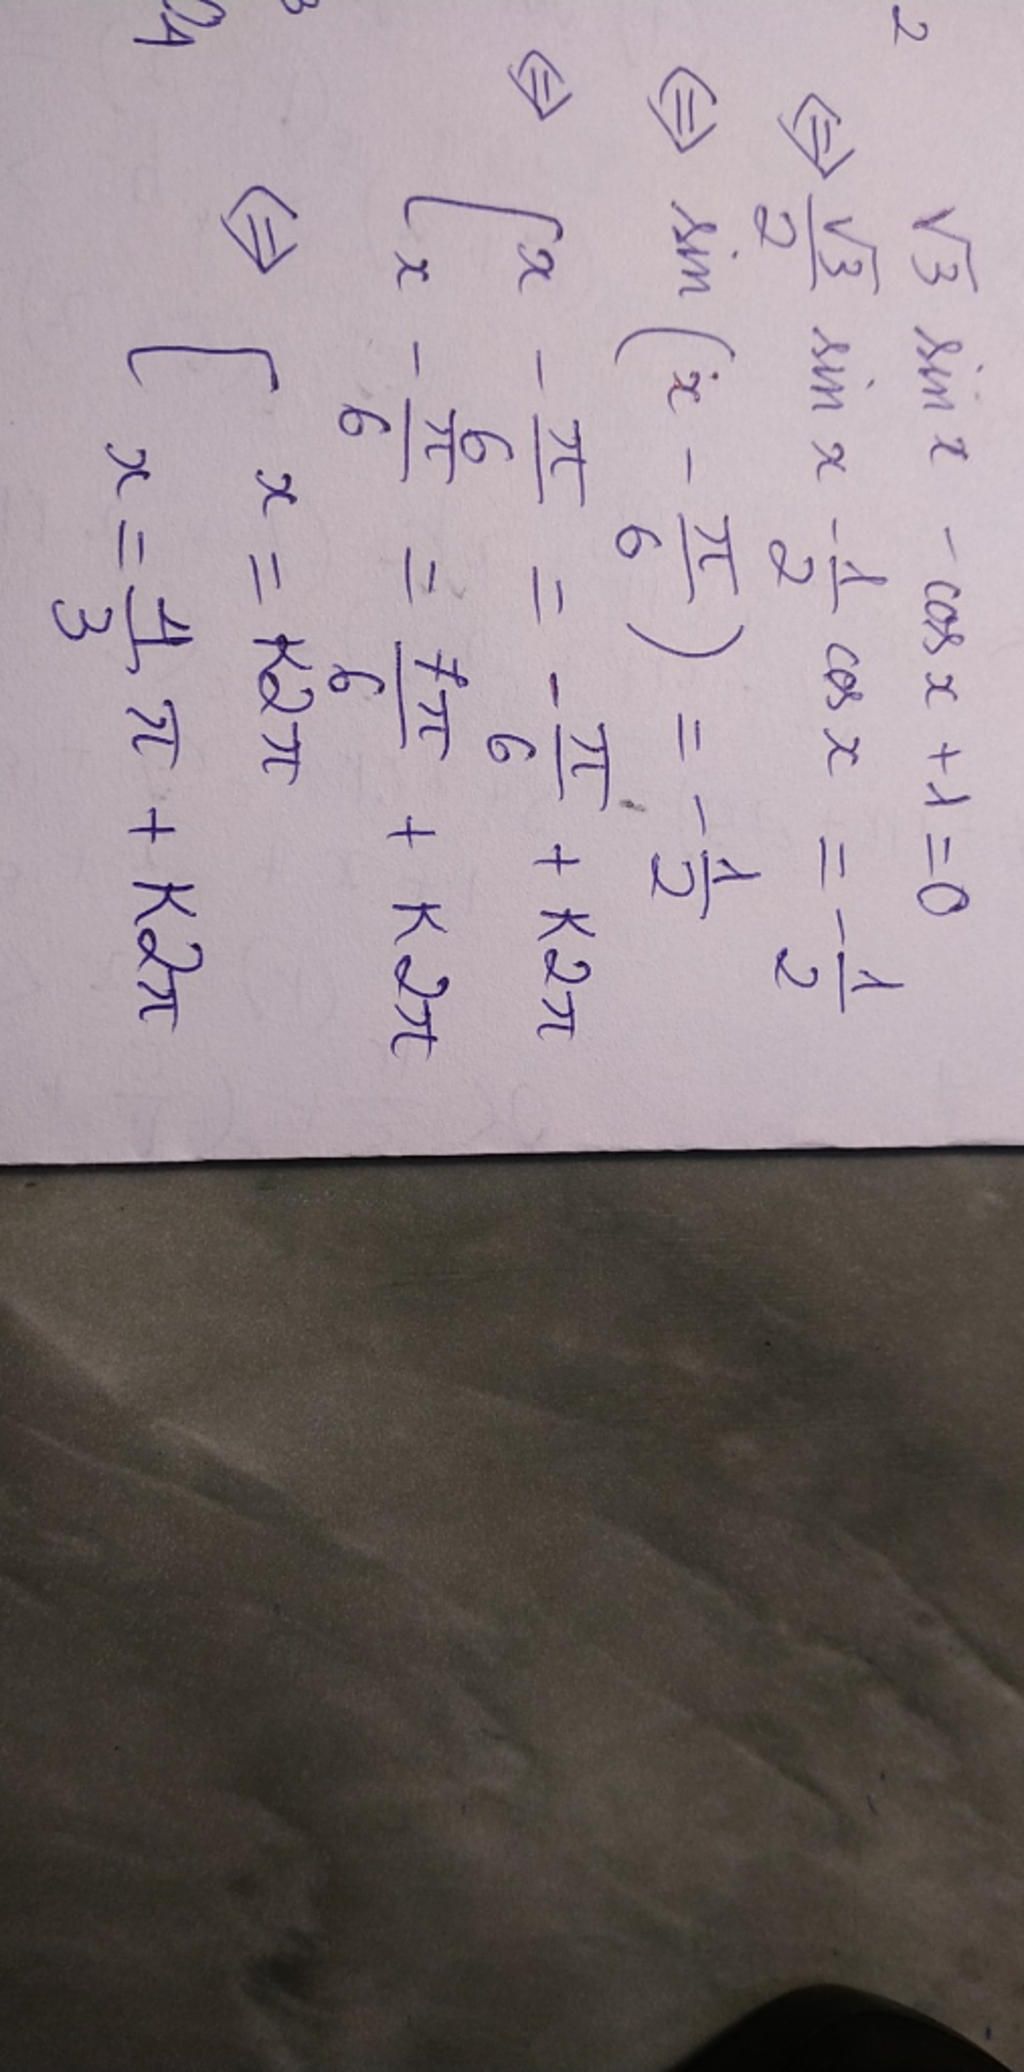 2
√3 sin x - cos x + 1 = 0
⇔ √3/2 sin x - 1/2 cos x = -1/2
⇔ sin (x - π/6) = -1/2
⇔ [ x - π/6 = -π/6 + k2π
x - π/6 = 7π/6 + k2π
⇔ [ x = k2π
x = 4/3 π + k2π